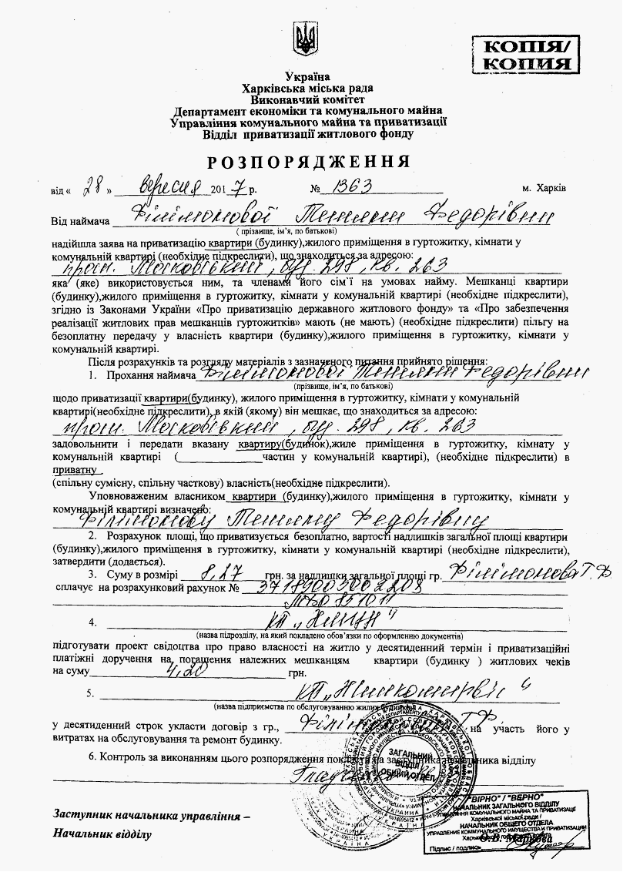 КОПІЯ/
КОПИЯ
Україна
Харківська міська рада
Виконавчий комітет
Департамент економіки та комунального майна
Управління комунального майна та приватизації
Відділ приватизації житлового фонду
РОЗПОРЯДЖЕННЯ
від « 28 » вересня 2017 р. № 1363 м. Харків
Від наймача Філімонової Тетяни Федорівни
( прізвище, ім’я, по батькові)
надійшла заява на приватизацію квартири (будинку),жилого приміщення в гуртожитку, кімнати у
комунальній квартирі (необхідне підкреслити), що знаходиться за адресою:
просп. Московський, буд. 298, кв. 263
яка (яке) використовується ним, та членами його сім’ї на умовах найму. Мешканці квартири
(будинку),жилого приміщення в гуртожитку, кімнати у комунальній квартирі (необхідне підкреслити),
згідно із Законами України «Про приватизацію державного житлового фонду» та «Про забезпечення
реалізації житлових прав мешканців гуртожитків» мають (не мають) (необхідне підкреслити) пільгу на
безоплатну передачу у власність квартири (будинку),жилого приміщення в гуртожитку, кімнати у
комунальній квартирі.
Після розрахунків та розгляду матеріалів з зазначеного питання прийнято рішення:
1. Прохання наймача Філімонової Тетяни Федорівни
(прізвище, ім’я, по батькові)
щодо приватизації квартири(будинку), жилого приміщення в гуртожитку, кімнати у комунальній
квартирі(необхідне підкреслити), в якій (якому) він мешкає, що знаходиться за адресою:
просп. Московський, буд. 298, кв. 263
задовольнити і передати вказану квартиру(будинок),жиле приміщення в гуртожитку, кімнату у
комунальній квартирі (____________частин у комунальній квартирі), (необхідне підкреслити) в
приватну
(спільну сумісну, спільну часткову) власність(необхідне підкреслити).
Уповноваженим власником квартири (будинку),жилого приміщення в гуртожитку, кімнати у
комунальній квартирі визначено:
Філімонову Тетяну Федорівну
2. Розрахунок площі, що приватизується безоплатно, вартості надлишків загальної площі квартири
(будинку),жилого приміщення в гуртожитку, кімнати у комунальній квартирі (необхідне підкреслити),
затвердити (додається).
3. Суму в розмірі 8,27 грн. за надлишки загальної площі гр. Філімонова Т.Ф
сплачує на розрахунковий рахунок №
МФО 851011
4. КП „
(назва підрозділу, на який покладено обов’язки по оформленню документів)
підготувати проект свідоцтва про право власності на житло у десятиденний термін і приватизаційні
платіжні доручення на погашення належних мешканцям квартири (будинку ) житлових чеків
на суму 4,20 грн.
5. КП „Жилкомсервіс“
(назва підприємства по обслуговуванню жилого будинку)
у десятиденний строк укласти договір з гр., Т.Ф. на участь його у
витратах на обслуговування та ремонт будинку.
6. Контроль за виконанням цього розпорядження на заступника начальника відділу
ЗАГАЛЬНИЙ
ВІДДІЛ
ОБЩИЙ ОТДЕЛ
Заступник начальника управління –
Начальник відділу
"ВІРНО" / "ВЕРНО"
НАЧАЛЬНИК ЗАГАЛЬНОГО ВІДДІЛУ
УПРАВЛІННЯ КОМУНАЛЬНОГО МАЙНА ТА ПРИВАТИЗАЦІЇ
Харківської міської ради /
НАЧАЛЬНИК ОБЩЕГО ОТДЕЛА
УПРАВЛЕНИЕ КОММУНАЛЬНОГО ИМУЩЕСТВА И ПРИВАТИЗАЦИИ
Підпис / подпись